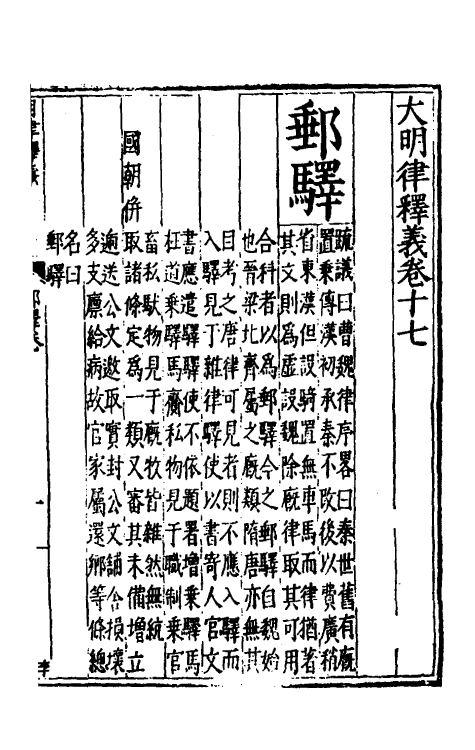 大明律釋義卷十七
郵驛
疏議曰曹魏律序畧曰秦世舊有廐
置乗傳漢初承秦不改後以費廣稍
省東漢但設騎置無車馬而律猶著
其文則爲虚設魏除廐律取其可用
合科者以爲郵驛令之郵驛自魏始
也晉梁北齊屬之廐類隋唐亦無其
目考之唐律可見者則不應入驛而
入驛見于雜律驛使以書寄人官文
書應遣驛驛使不依題署增乗驛馬
枉道乗驛馬齎私物見于職制乗官
畜私馱物見于廐牧皆雜然無統
國朝併取諸條定爲一類又審其未備增立
逓送公文邀取實封公文舖舎損壞
多支廪給病故官家屬還鄉等條總
名曰
郵驛